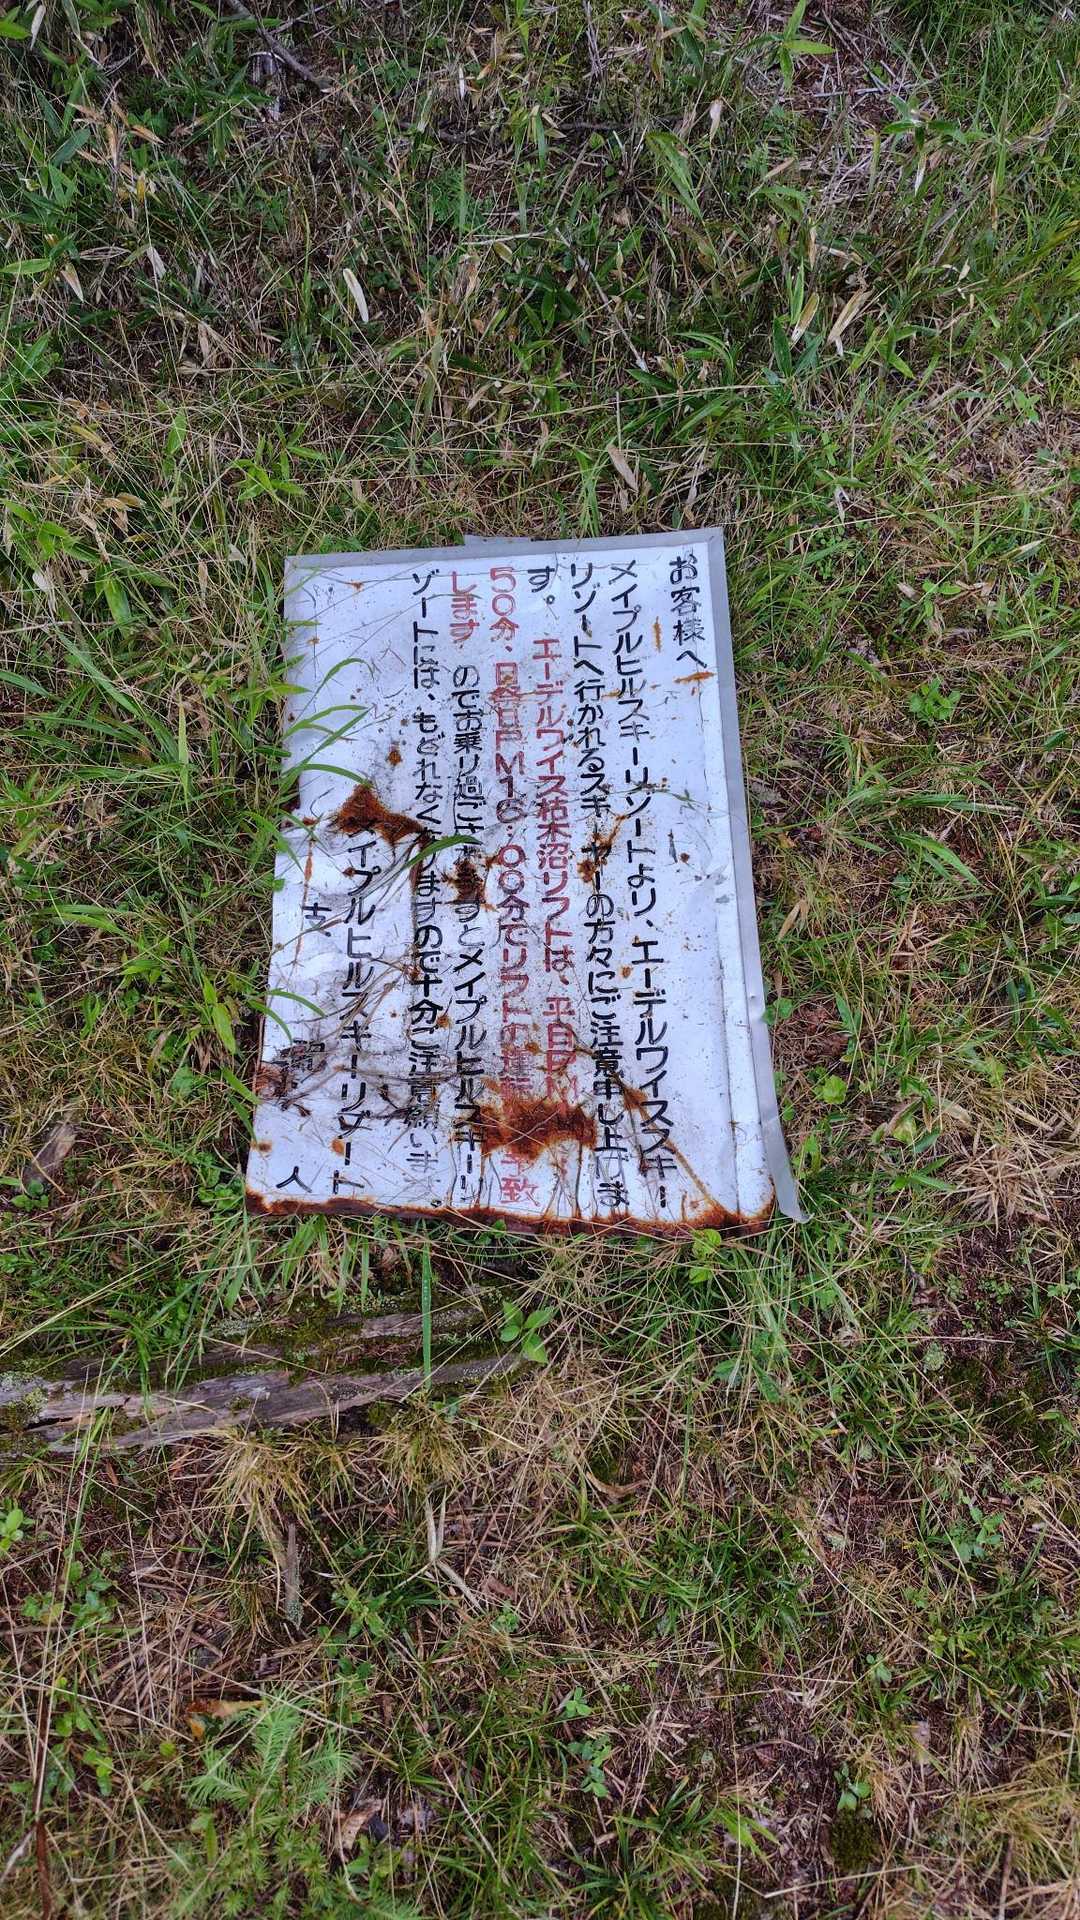 お客様へ
メイプルヒルスキーリゾートより、エーデルワイススキー
リゾートへ行かれるスキーヤーの方々にご注意申し上げま
す。 エーデルワイス枯木沼リフトは、平日PM
50分、日祭日PM16:00分でリフトの運転 致
します のでお乗り過ごされますとメイプルヒルスキーリ
ゾートには、もどれなくなりますので十分ご注意願います。
メイプルヒルスキーリゾート
支 配 人